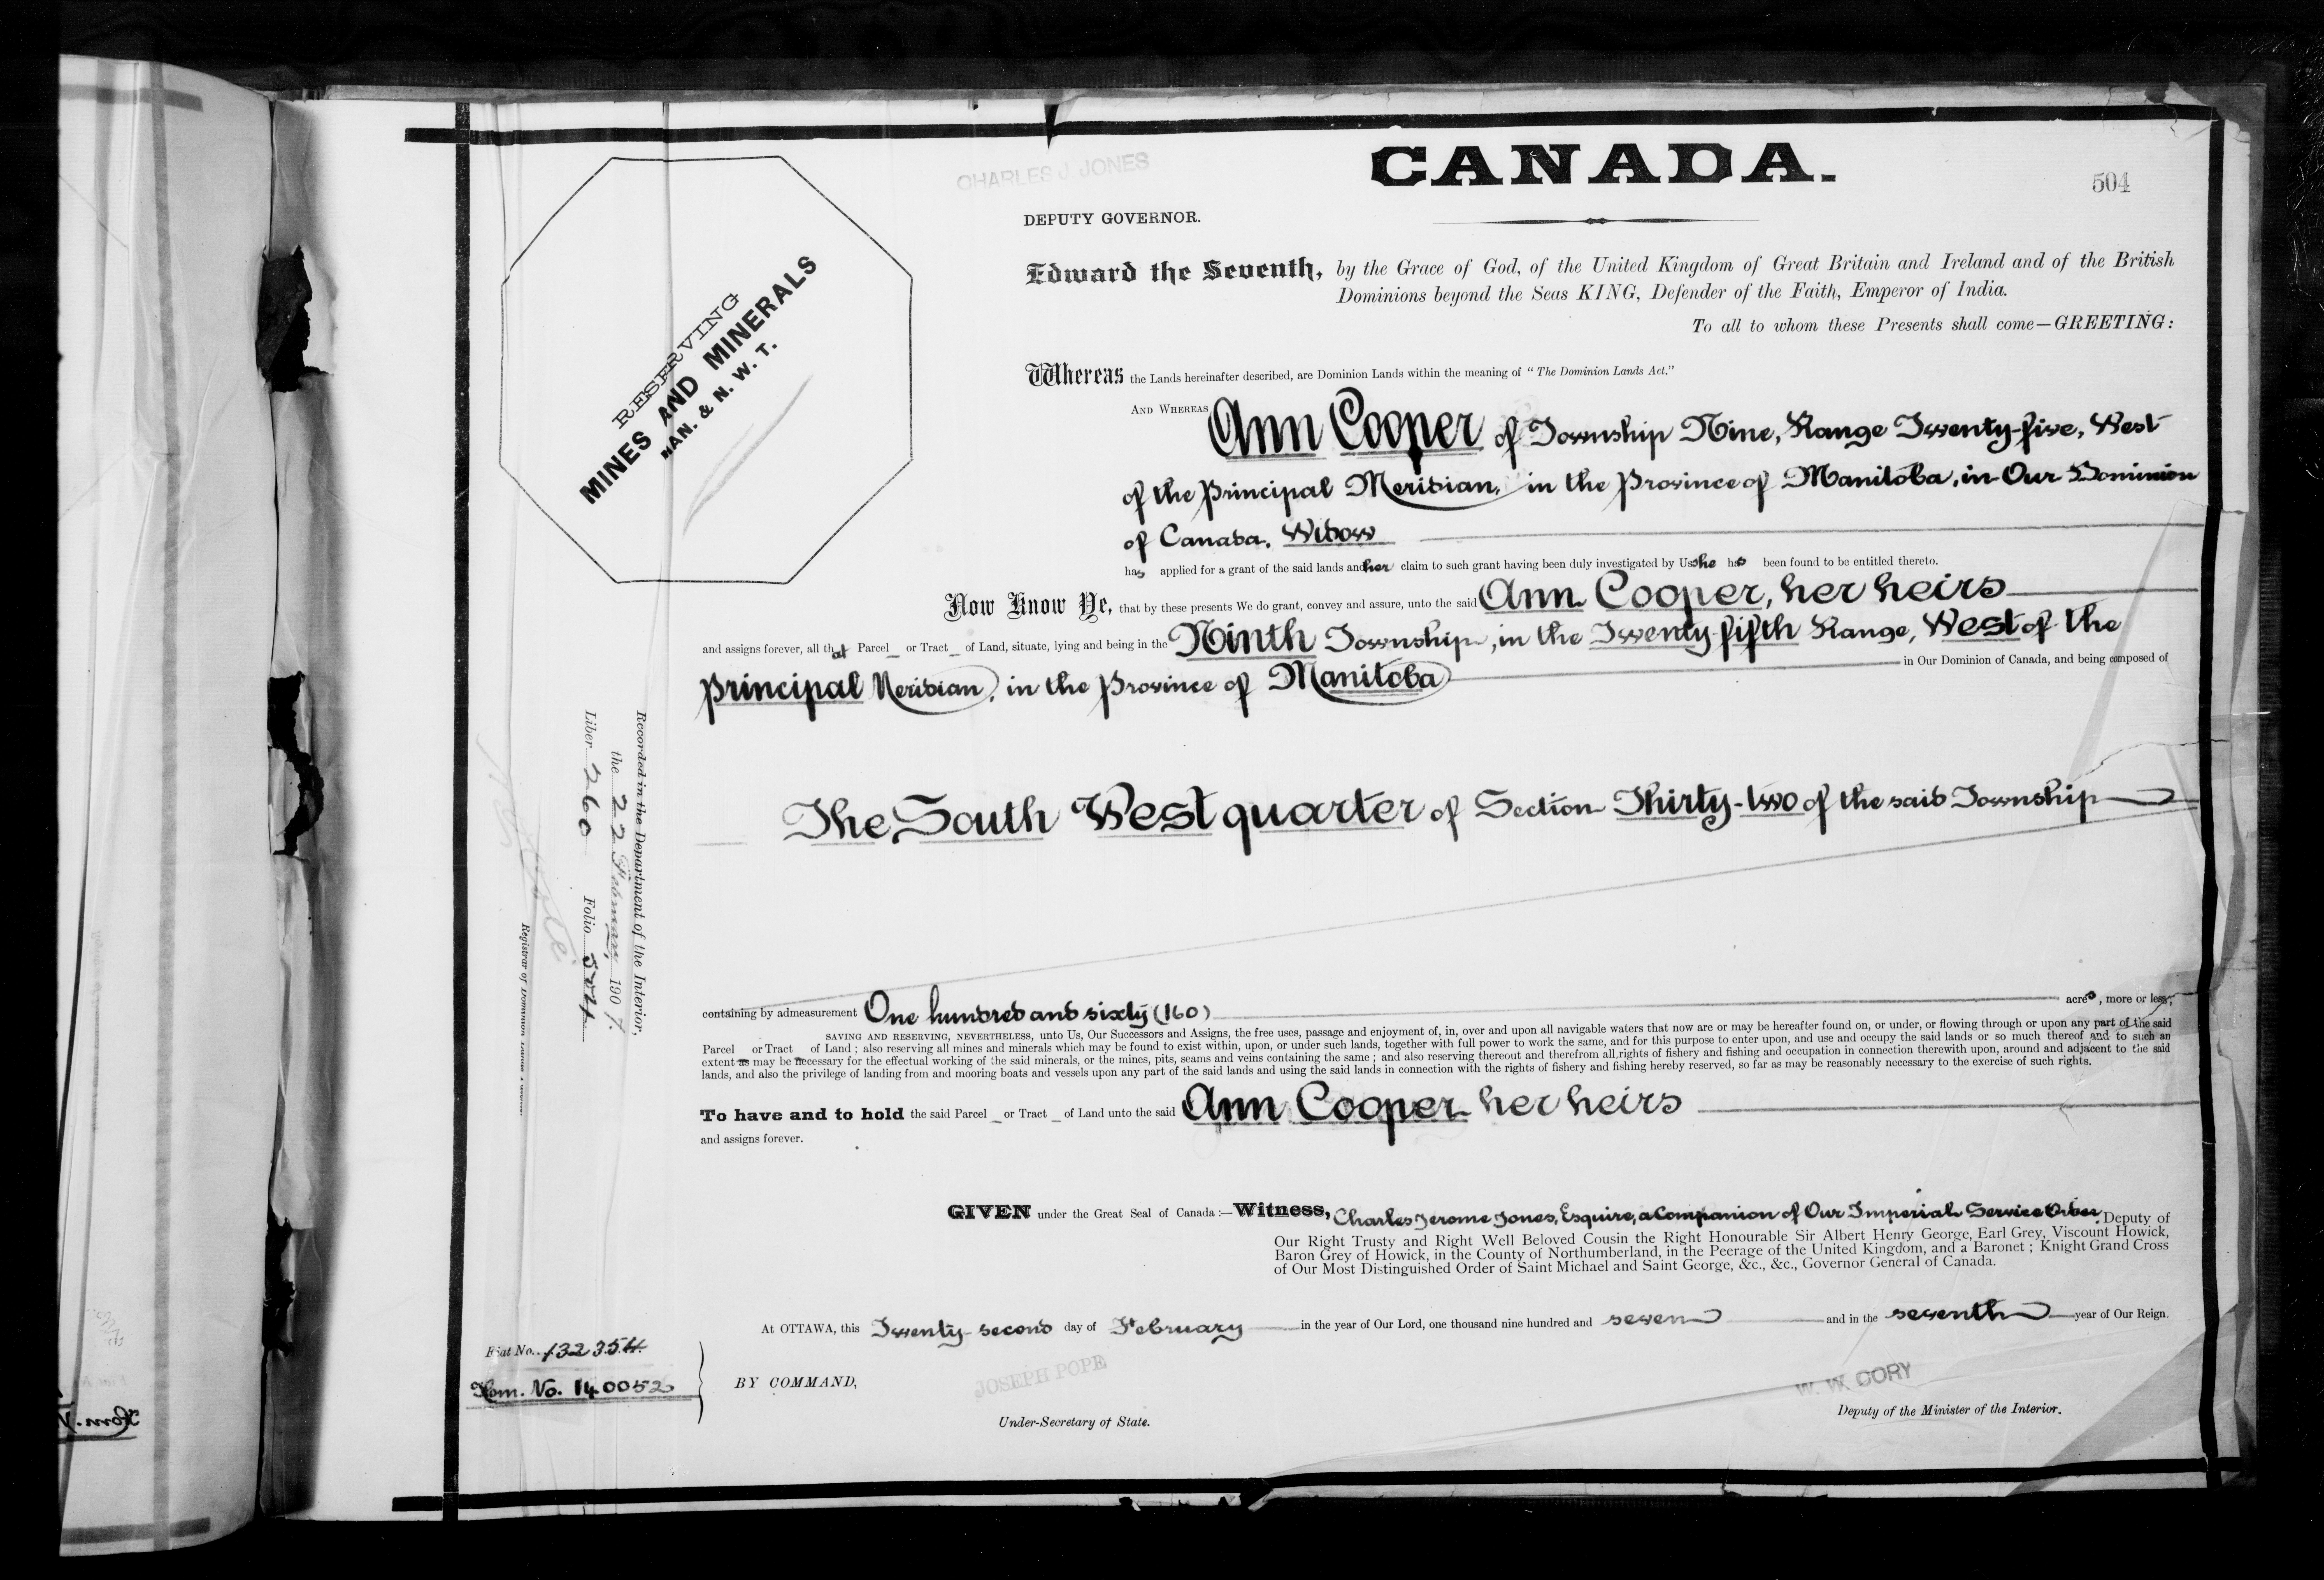 CANADA.
504
CHARLES J. JONES
DEPUTY GOVERNOR.
RESERVING
MINES AND MINERALS
MAN. & N. W. T.
Edward the Seventh, by the Grace of God, of the United Kingdom of Great Britain and Ireland and of the British
Dominions beyond the Seas KING, Defender of the Faith, Emperor of India.
To all to whom these Presents shall come—GREETING:
Whereas the Lands hereinafter described, are Dominion Lands within the meaning of "The Dominion Lands Act."
AND WHEREAS Ann Cooper of Township Nine, Range Twenty-five, West
of the Principal Meridian, in the Province of Manitoba, in Our Dominion
of Canada, Widow
has applied for a grant of the said lands and her claim to such grant having been duly investigated by Us she has been found to be entitled thereto.
Now Know Ye, that by these presents We do grant, convey and assure, unto the said Ann Cooper, her heirs
and assigns forever, all that Parcel or Tract of Land, situate, lying and being in the Ninth Township, in the Twenty-fifth Range, West of the
Principal Meridian, in the Province of Manitoba in Our Dominion of Canada, and being composed of
The South West quarter of Section Thirty-two of the said Township
containing by admeasurement One hundred and sixty (160) acres, more or less;
SAVING AND RESERVING, NEVERTHELESS, unto Us, Our Successors and Assigns, the free uses, passage and enjoyment of, in, over and upon all navigable waters that now are or may be hereafter found on, or under, or flowing through or upon any part of the said
Parcel or Tract of Land; also reserving all mines and minerals which may be found to exist within, upon, or under such lands, together with full power to work the same, and for this purpose to enter upon, and use and occupy the said lands or so much thereof and to such an
extent as may be necessary for the effectual working of the said minerals, or the mines, pits, seams and veins containing the same; and also reserving thereout and therefrom all rights of fishery and fishing and occupation in connection therewith upon, around and adjacent to the said
lands, and also the privilege of landing from and mooring boats and vessels upon any part of the said lands and using the said lands in connection with the rights of fishery and fishing hereby reserved, so far as may be reasonably necessary to the exercise of such rights.
To have and to hold the said Parcel or Tract of Land unto the said Ann Cooper her heirs
and assigns forever.
GIVEN under the Great Seal of Canada:—Witness, Charles Jerome Jones, Esquire, a Companion of Our Imperial Service Order, Deputy of
Our Right Trusty and Right Well Beloved Cousin the Right Honourable Sir Albert Henry George, Earl Grey, Viscount Howick,
Baron Grey of Howick, in the County of Northumberland, in the Peerage of the United Kingdom, and a Baronet; Knight Grand Cross
of Our Most Distinguished Order of Saint Michael and Saint George, &c., &c., Governor General of Canada.
At OTTAWA, this Twenty-second day of February in the year of Our Lord, one thousand nine hundred and seven and in the seventh year of Our Reign.
BY COMMAND,
JOSEPH POPE
Under-Secretary of State.
W. W. CORY
Deputy of the Minister of the Interior.
Recorded in the Department of the Interior,
the 22 February, 1907.
Liber 260 Folio 504
Registrar of Dominion Lands Patents.
Fiat No. 132354
Hom. No. 140052